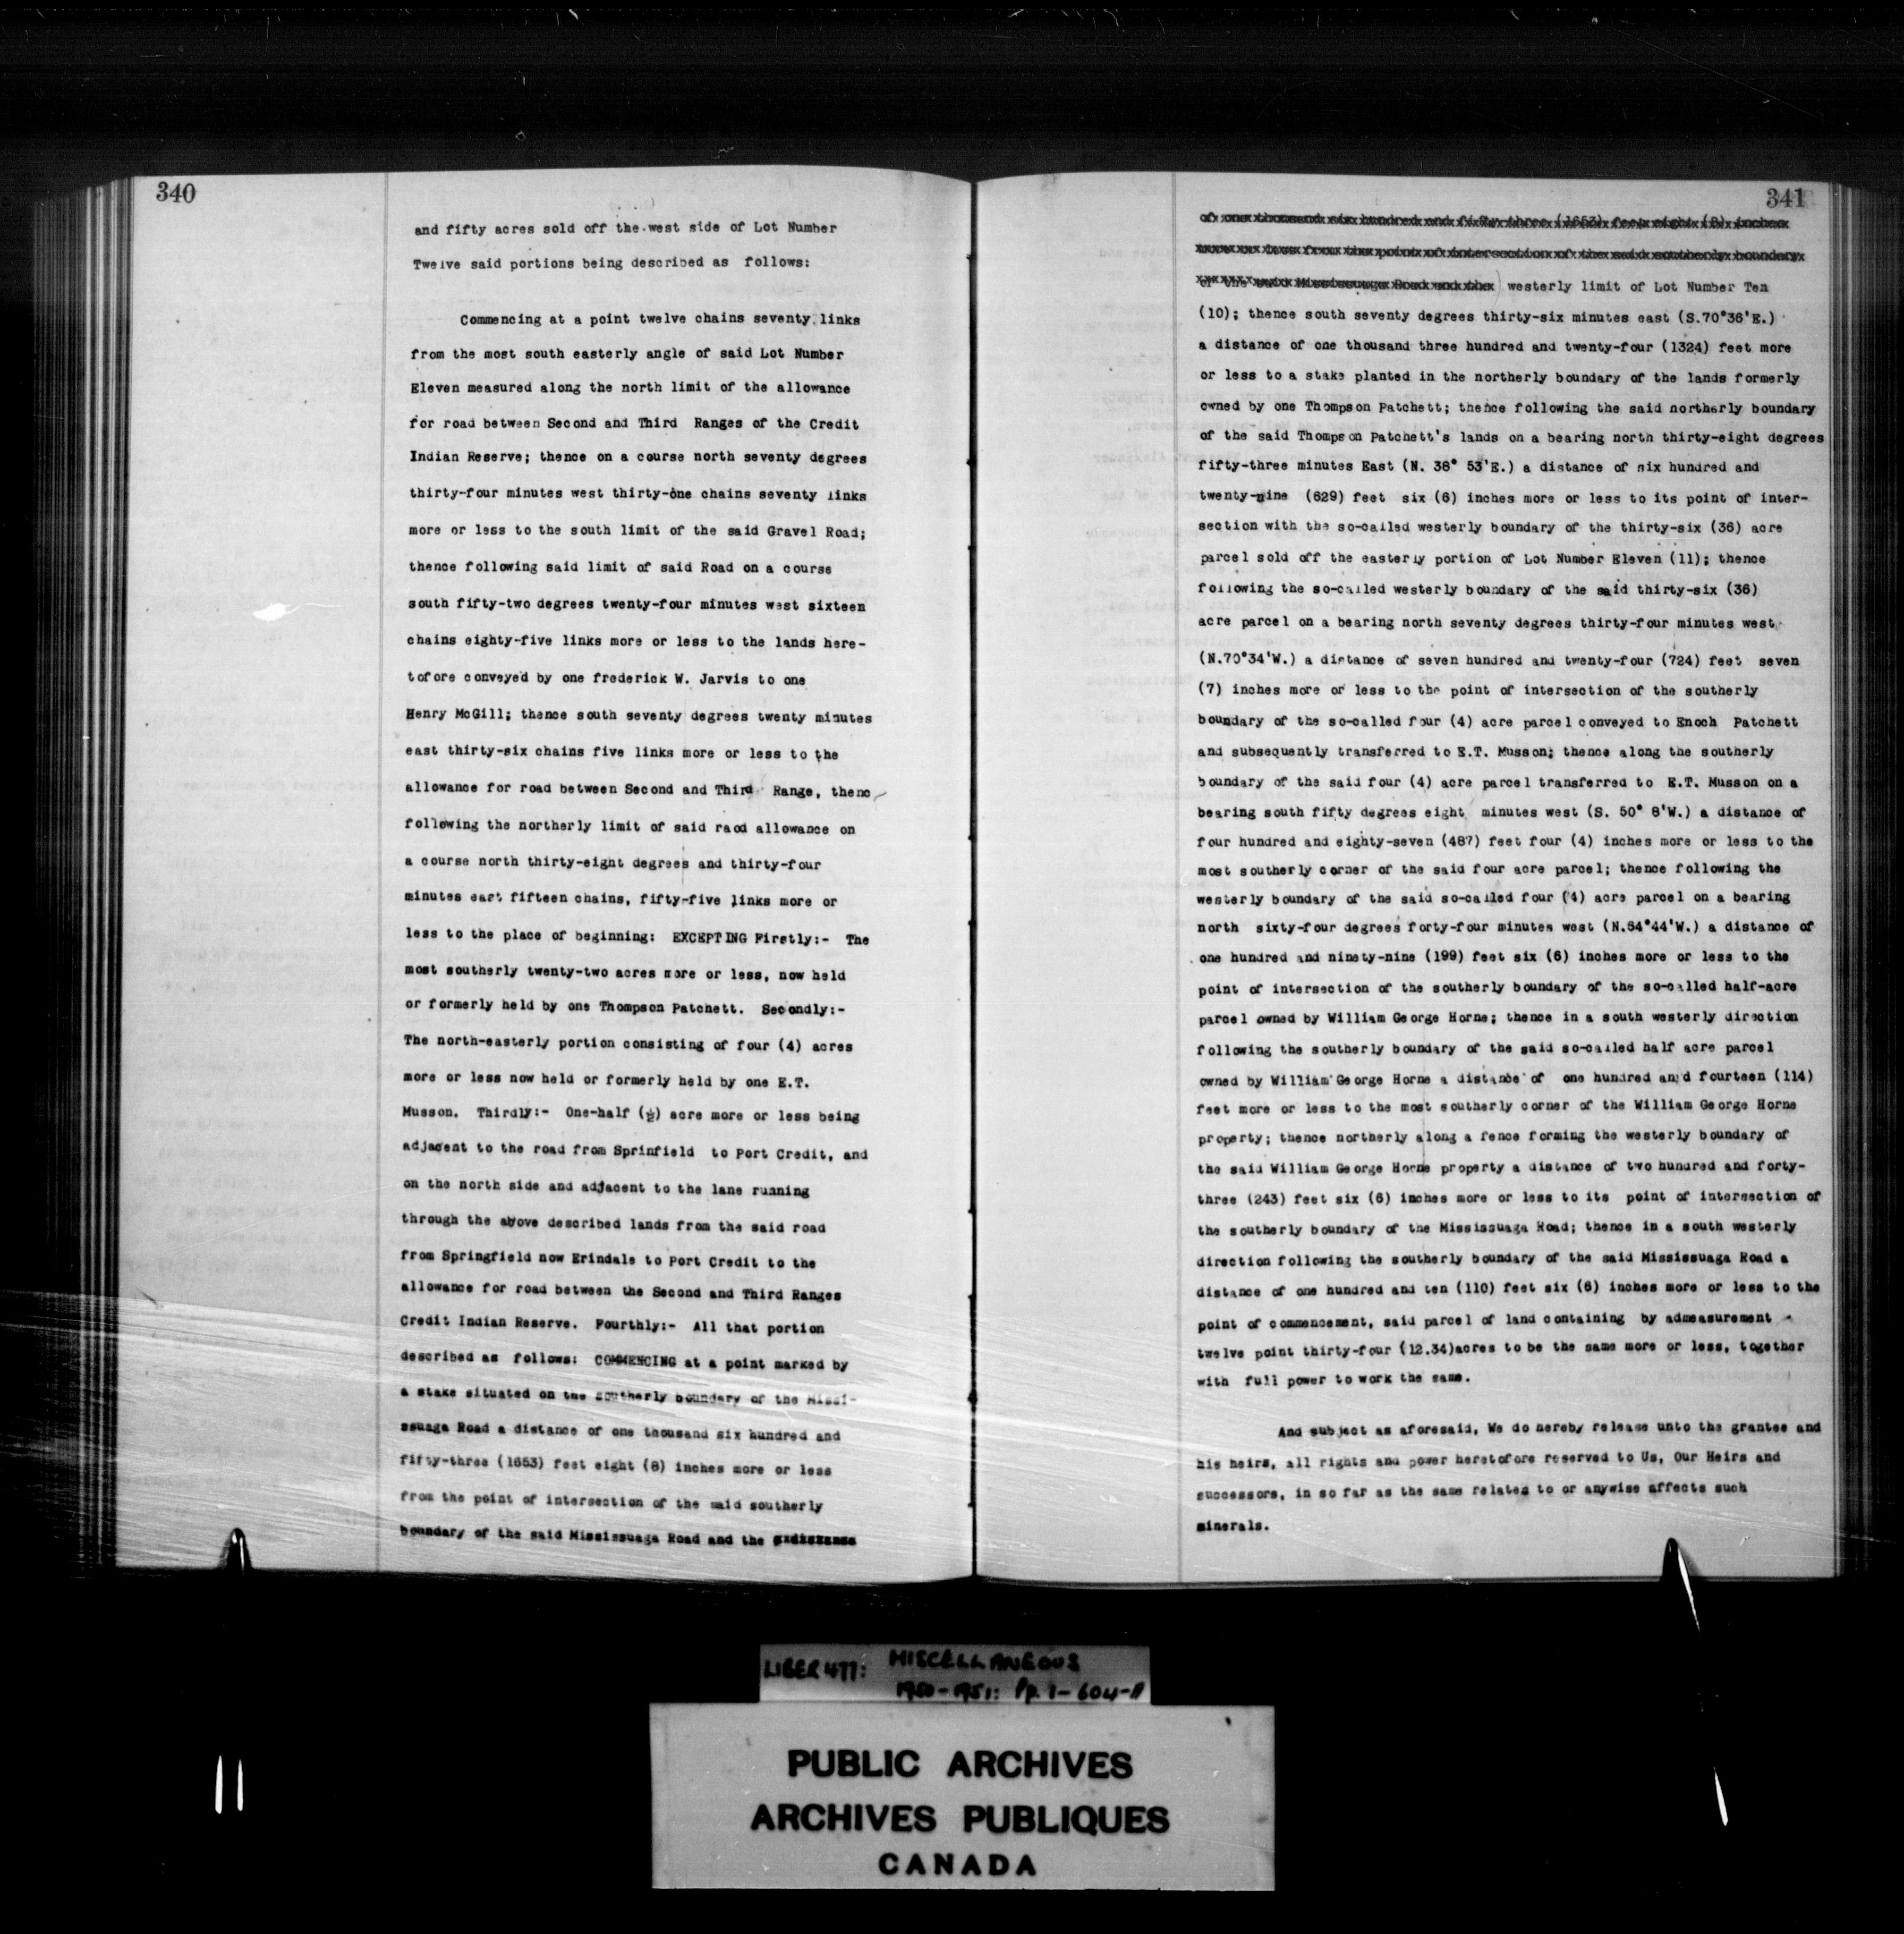 340
and fifty acres sold off the west side of Lot Number
Twelve said portions being described as follows:
Commencing at a point twelve chains seventy links
from the most south easterly angle of said Lot Number
Eleven measured along the north limit of the allowance
for road between Second and Third Ranges of the Credit
Indian Reserve; thence on a course north seventy degrees
thirty-four minutes west thirty-one chains seventy links
more or less to the south limit of the said Gravel Road;
thence following said limit of said Road on a course
south fifty-two degrees twenty-four minutes west sixteen
chains eighty-five links more or less to the lands here-
tofore conveyed by one frederick W. Jarvis to one
Henry McGill; thence south seventy degrees twenty minutes
east thirty-six chains five links more or less to the
allowance for road between Second and Third Range, thenc
following the northerly limit of said raod allowance on
a course north thirty-eight degrees and thirty-four
minutes east fifteen chains, fifty-five links more or
less to the place of beginning: EXCEPTING Firstly:- The
most southerly twenty-two acres more or less, now held
or formerly held by one Thompson Patchett. Secondly:-
The north-easterly portion consisting of four (4) acres
more or less now held or formerly held by one E.T.
Musson. Thirdly:- One-half (½) acre more or less being
adjacent to the road from Sprinfield to Port Credit, and
on the north side and adjacent to the lane running
through the above described lands from the said road
from Springfield now Erindale to Port Credit to the
allowance for road between the Second and Third Ranges
Credit Indian Reserve. Fourthly:- All that portion
described as follows: COMMENCING at a point marked by
a stake situated on the southerly boundary of the Missi-
ssuaga Road a distance of one thousand six hundred and
fifty-three (1653) feet eight (8) inches more or less
from the point of intersection of the said southerly
boundary of the said Mississuaga Road and the
341
of one thousand six hundred and fifty three (1653) feet eight (8) inches
more or less from the point of intersection of the said southerly boundary
of the said Mississuaga Road and the westerly limit of Lot Number Ten
(10); thence south seventy degrees thirty-six minutes east (S.70°36'E.)
a distance of one thousand three hundred and twenty-four (1324) feet more
or less to a stake planted in the northerly boundary of the lands formerly
owned by one Thompson Patchett; thence following the said northerly boundary
of the said Thompson Patchett's lands on a bearing north thirty-eight degrees
fifty-three minutes East (N. 38° 53'E.) a distance of six hundred and
twenty-nine (629) feet six (6) inches more or less to its point of inter-
section with the so-called westerly boundary of the thirty-six (36) acre
parcel sold off the easterly portion of Lot Number Eleven (11); thence
following the so-called westerly boundary of the said thirty-six (36)
acre parcel on a bearing north seventy degrees thirty-four minutes west
(N.70°34'W.) a distance of seven hundred and twenty-four (724) feet seven
(7) inches more or less to the point of intersection of the southerly
boundary of the so-called four (4) acre parcel conveyed to Enoch Patchett
and subsequently transferred to E.T. Musson; thence along the southerly
boundary of the said four (4) acre parcel transferred to E.T. Musson on a
bearing south fifty degrees eight minutes west (S. 50° 8'W.) a distance of
four hundred and eighty-seven (487) feet four (4) inches more or less to the
most southerly corner of the said four acre parcel; thence following the
westerly boundary of the said so-called four (4) acre parcel on a bearing
north sixty-four degrees forty-four minutes west (N.64°44'W.) a distance of
one hundred and ninety-nine (199) feet six (6) inches more or less to the
point of intersection of the southerly boundary of the so-called half-acre
parcel owned by William George Horne; thence in a south westerly direction
following the southerly boundary of the said so-called half acre parcel
owned by William George Horne a distance of one hundred and fourteen (114)
feet more or less to the most southerly corner of the William George Horne
property; thence northerly along a fence forming the westerly boundary of
the said William George Horne property a distance of two hundred and forty-
three (243) feet six (6) inches more or less to its point of intersection of
the southerly boundary of the Mississuaga Road; thence in a south westerly
direction following the southerly boundary of the said Mississuaga Road a
distance of one hundred and ten (110) feet six (6) inches more or less to the
point of commencement, said parcel of land containing by admeasurement
twelve point thirty-four (12.34)acres to be the same more or less, together
with full power to work the same.
And subject as aforesaid, We do hereby release unto the grantee and
his heirs, all rights and power heretofore reserved to Us, Our Heirs and
successors, in so far as the same relates to or anywise affects such
minerals.
LIBER 477: MISCELLANEOUS
1950-1951: Pp. 1-604-A
PUBLIC ARCHIVES
ARCHIVES PUBLIQUES
CANADA